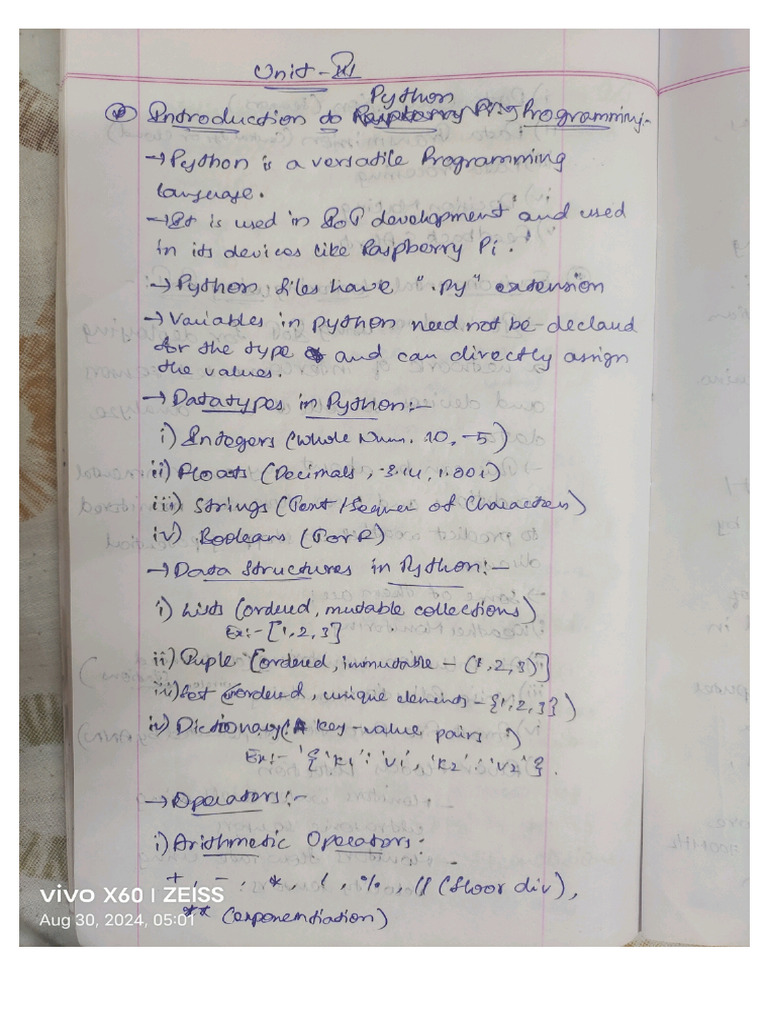 Unit - III
Python
Introduction to Raspberry Pi Programming:-
→ Python is a versatile Programming
language.
→ It is used in IoT development and used
in its devices like Raspberry Pi.
→ Python files have ".py" extension
→ Variables in python need not be declaud
for the type and can directly assign
the values.
→ Datatypes in Python:-
i) Integers (Whole Num. 10, -5)
ii) Floats (Decimals, -3.14, 1.001)
iii) Strings (Text / Sequen of Characters)
iv) Booleans (T or F)
→ Data Structures in Python:-
i) Lists (ordered, mutable collections)
Ex:- [1,2,3]
ii) Tuple [ordered, immutable - (1,2,3)]
iii) Set (ordered, unique elements - {1,2,3})
iv) Dictionary (key-value pairs)
Ex:- '{'k1': 'v1', 'k2': 'v2'}.
→ Operators:-
i) Arithmetic Operators:
+, -, *, /, %, // (floor div),
** (exponentiation)
vivo X60 | ZEISS
Aug 30, 2024, 05:01